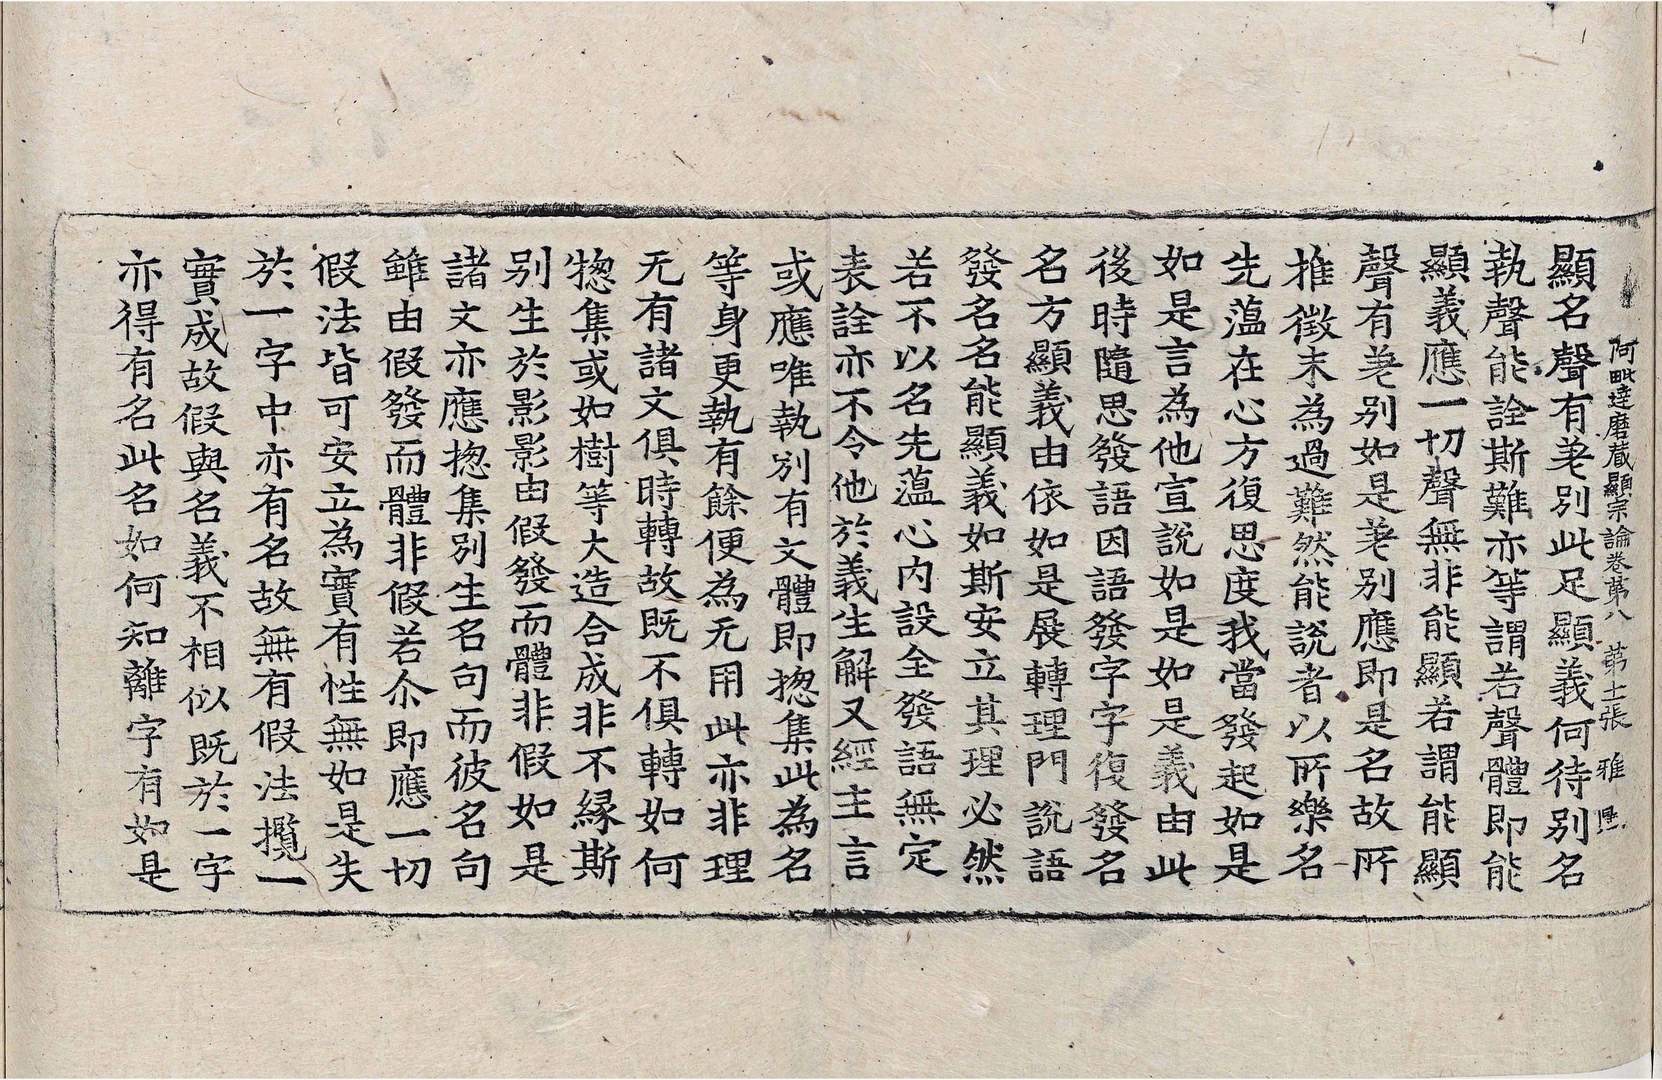 阿毗達磨藏顯宗論卷第八　第十二張　雅
顯名聲有差別此足顯義何待別名
執聲能詮斯難亦等謂若聲體即能
顯義應一切聲無非能顯若謂能顯
聲有差別如是差別應即是名故所
推徵未為過難然能說者以所樂名
先蕰在心方復思度我當發起如是
如是言為他宣說如是如是義由此
後時隨思發語因語發字字復發名
名方顯義由依如是展轉理門說語
發名名能顯義如斯安立其理必然
若不以名先蕰心內設全發語無定
表詮亦不令他於義生解又經主言
或應唯執別有文體即揔集此為名
等身更執有餘便為无用此亦非理
无有諸文俱時轉故既不俱轉如何
揔集或如樹等大造合成非不緣斯
別生於影影由假發而體非假如是
諸文亦應揔集別生名句而彼名句
雖由假發而體非假若尒即應一切
假法皆可安立為實有性無如是失
於一字中亦有名故無有假法攬一
實成故假與名義不相似既於一字
亦得有名此名如何知離字有如是